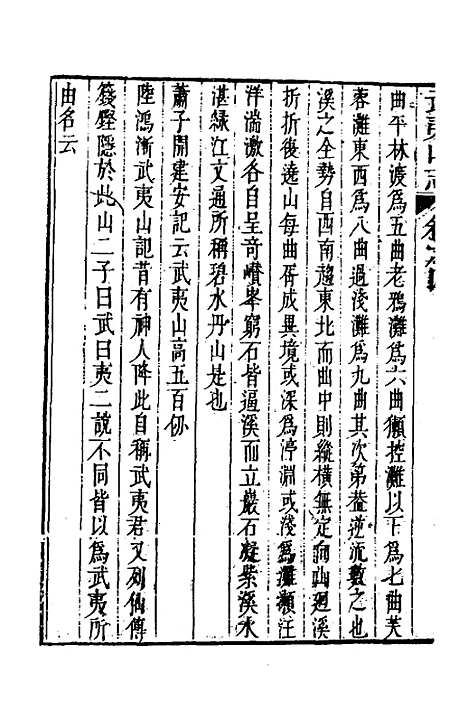 曲平林渡爲五曲老鴉灘爲六曲獺控灘以下爲七曲芙
蓉灘東西爲八曲過淺灘爲九曲其次第葢逆流數之也
溪之全勢自西南趨東北而曲中則縱橫無定向山迴溪
折折後遶山每曲胥成異境或深爲渟淵或淺爲灘瀬汪
洋湍激各自呈奇巑峯窮石皆逼溪而立巖石凝紫溪水
湛綠江文通所稱碧水丹山是也
蕭子開建安記云武夷山高五百仞
陸鴻漸武夷山記昔有神人降此自稱武夷君又列仙傳
籛鏗隱於此山二子曰武曰夷二說不同皆以爲武夷所
由名云